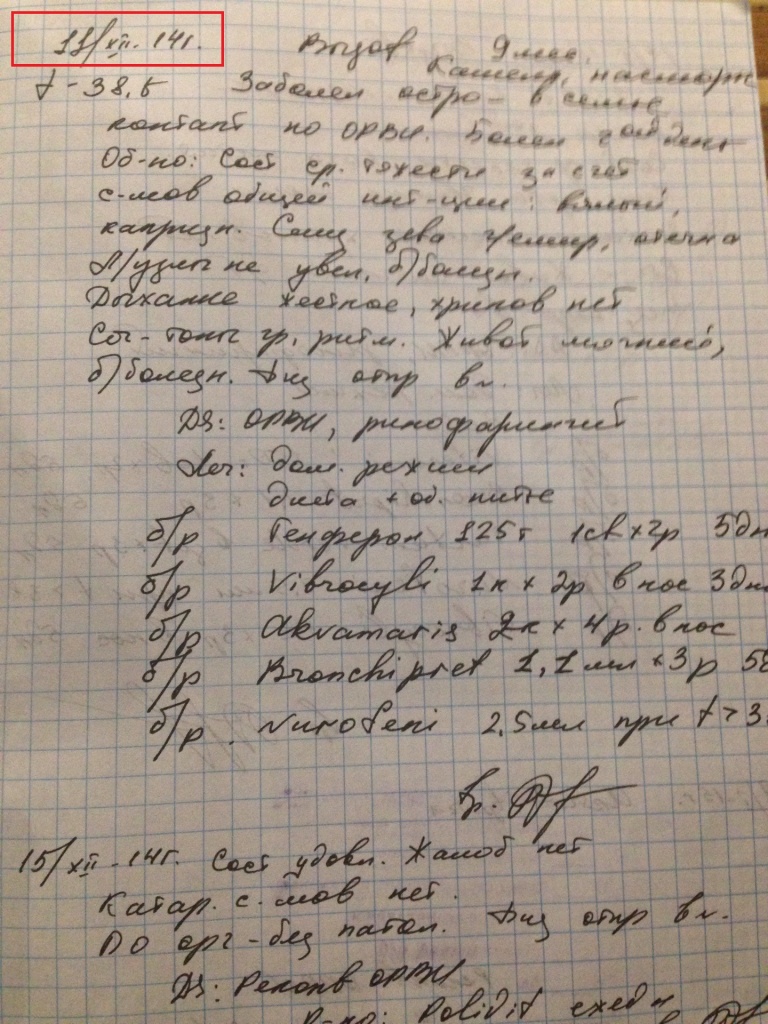 11/XII. 14г. Вызов 9 мес.
t - 38,5 Кашель, насморк
Заболел остро - в семье
контакт по ОРВИ. Болен день
Об-но: Сост ср. тяжести за счет
с-мов общей инт-ции: вялый,
каприз. Слиз зева гипер, отечна
Л/узлы не увел, б/болезн.
Дыхание жесткое, хрипов нет
Сer- тоны гр, ритм. Живот мягкий,
б/болезн. Физ отпр в N.
DS: ОРВИ, ринофарингит
Леч: дом. режим
диета + об. питье
б/р Генферон 125т 1св x 2р 5дн
б/р Vibrocyli 1к x 2р в нос 3дн
б/р Akvamaris 2к x 4р. в нос
б/р Bronchipret 1,1 мл x 3р 5
б/р. Nurofeni 2,5мл при t > 3
Вр.
15/XII - 14г. Сост удовл. Жалоб нет
Катар. с-мов нет.
По орг - без патол. Физ отпр в N.
DS: Реконв ОРВИ
Р-но: Polivit ежедн